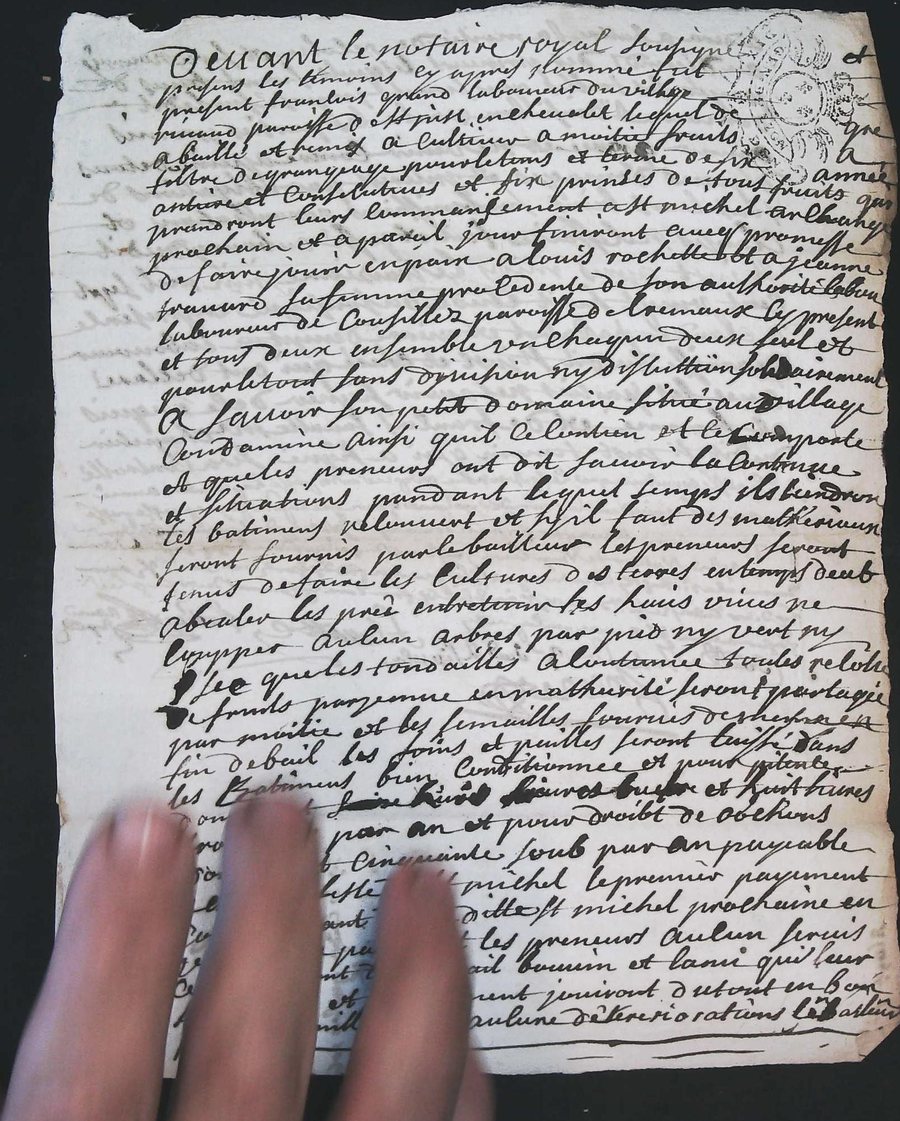 Devant le notaire royal sousigné et
presens les temoins cy apres nommé fut
present francois grand laboureur du village
rucaud paroisse d'est just en chevalet lequel de gre
a baillé et remis a cultiver a moitié fruits a
tiltre de grangeage pour le tems et terme de six année
antiere et Consecutives et six prinses de tous fruits qui
prandront leurs Commancement a st michel archange
prochain et a pareil jour finiront avecq promesse
de faire jouir en paix a louis rochette et a jeanne
travard sa femme procedente de son authorité
laboureur de Cousillez paroisse de cremaux cy present
et tous deux ensemble un chaqun deux seul et
pour le tout sans division ny discution solidairement
A Savoir son petit domaine situé au village
Condamine ainsi quil Ce Contien et le Comporte
et que les preneurs ont dit savoir la Contenue
et situations pandant lequel temps ils tiendron
les batimens recouvert et s'il faut des matheriaux
seront fournis par le bailleur les preneurs seront
tenus de faire les Cultures des terres en temps deub
les pré entretenir les hais vives ne
Coypper aulcun arbres par pied ny vert ny
sec que les tondailles a Coutumée toutes recolte
de fruits parvenue en mathurité seront partagée
par moitie et les semailles fournies de mesme en
fin de bail les foins et pailles seront laissé dans
les Batimens bien Conditionnée et pour
huit livres beurre et huit livres
par an et pour droibt de cochons
Cinquante soub par an payeable
michel le premier payement
ditte st michel prochaine en
les preneurs aulcun servis
bail bouvin et lami qui leur
jouiront du tout en bon
aulcune deteriorations le bailleur